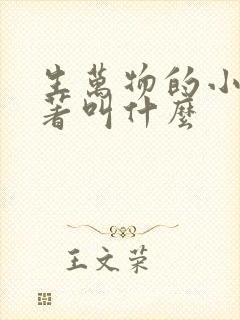 生萬物的小
著叫什麼
王文荣